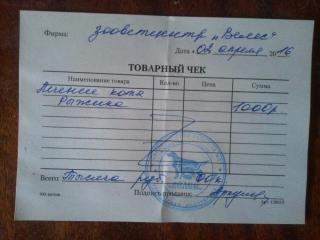 Фирма: зооветцентр "Велес"
Дата «02 апреля 2016
ТОВАРНЫЙ ЧЕК
Наименование товара Кол-во Цена Сумма
Лечение кота
Рыжика 1000р.
Всего: Тысяча руб 00к
Подпись продавца